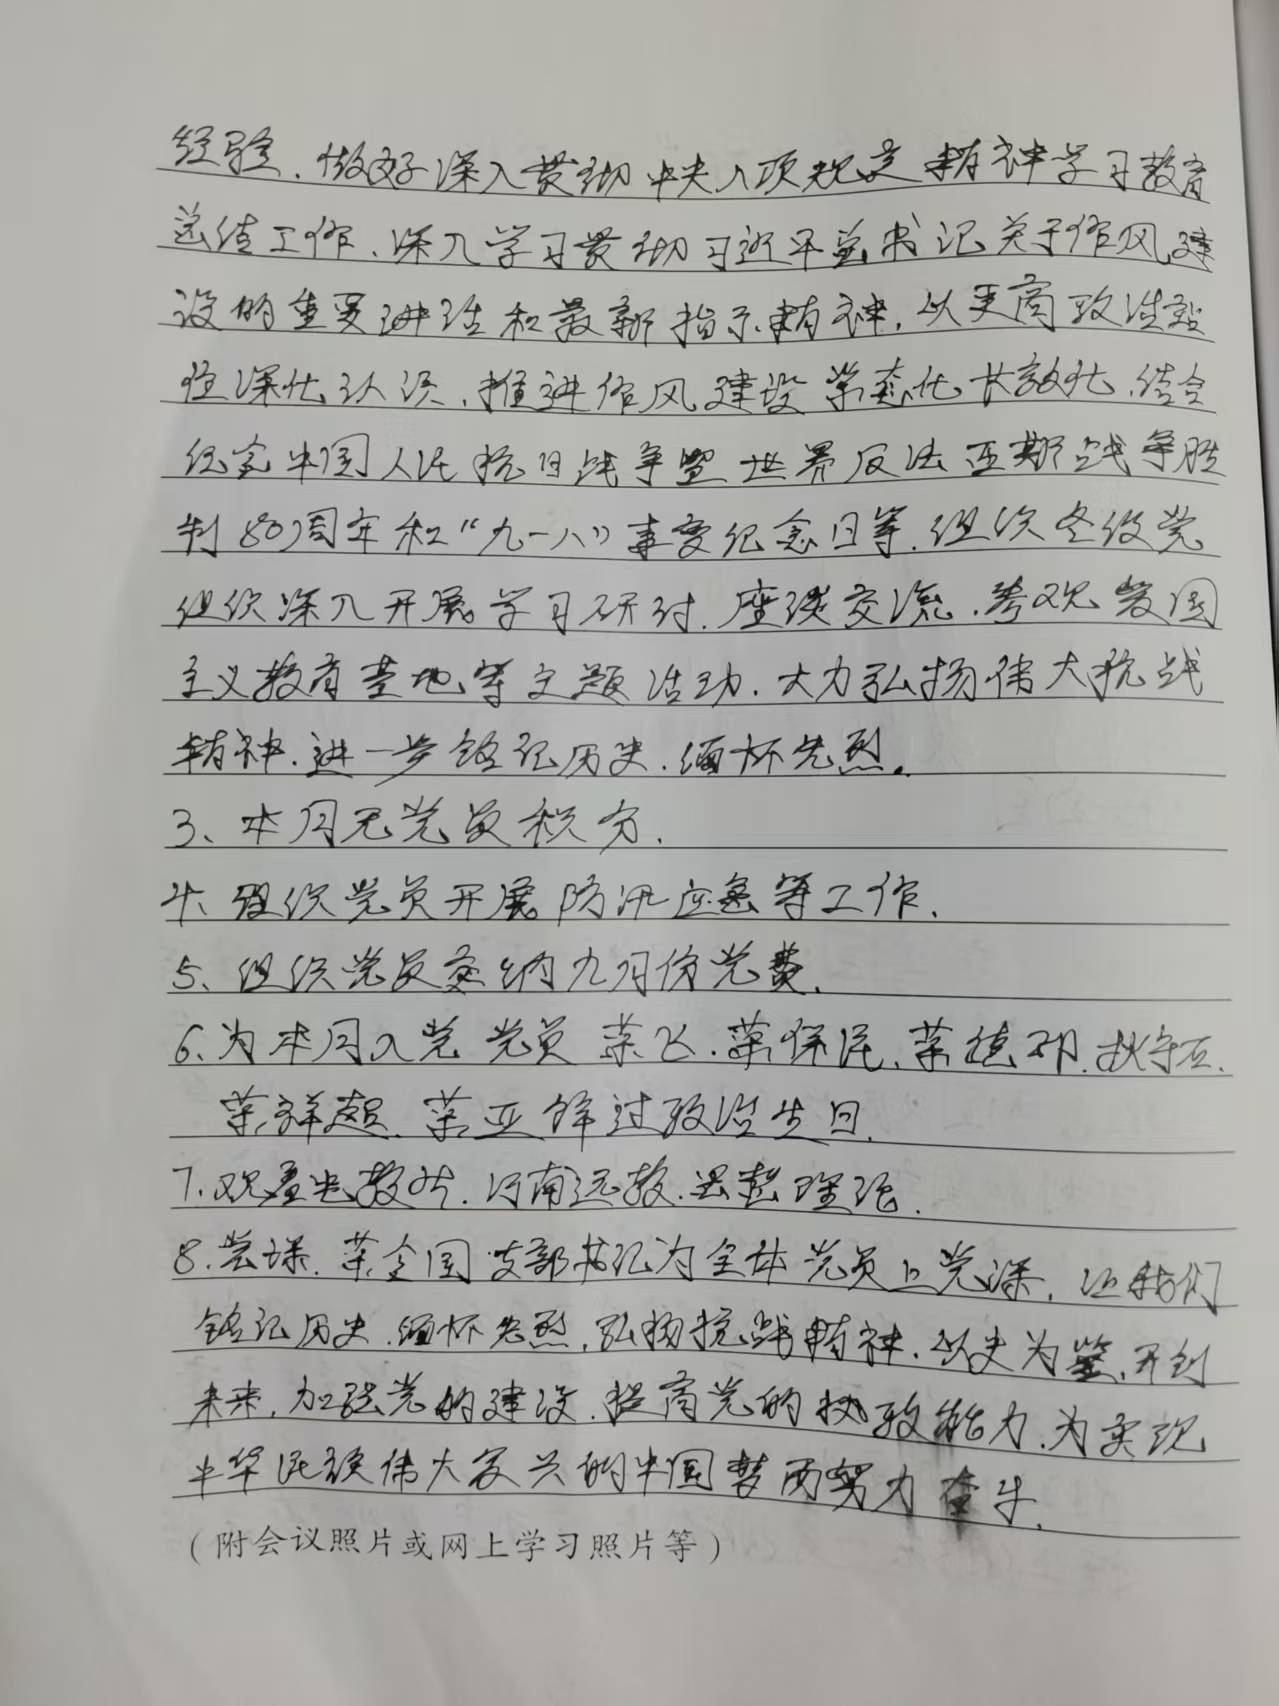 经验、做好深入贯彻中央八项规定精神学习教育
总结工作、深入学习贯彻习近平总书记关于作风建
设的重要讲话和最新指示精神，以更高政治站
位深化认识、推进作风建设常态化长效化，结合
纪念中国人民抗日战争暨世界反法西斯战争胜
利80周年和“九一八”事变纪念日等，组织各级党
组织深入开展学习研讨、座谈交流、参观爱国
主义教育基地等主题活动，大力弘扬伟大抗战
精神、进一步铭记历史、缅怀先烈。
3、本月无党员积分.
4、组织党员开展防汛应急等工作.
5、组织党员交纳九月份党费.
6、为本月入党党员 菜飞、菜保民、菜德
菜祥超、菜亚锋过政治生日.
7、观看 河南远教、
8、党课、菜全国支部书记为全体党员上党课，让我们
铭记历史、缅怀先烈，弘扬抗战精神、以史为鉴，开创
未来，加强党的建设、提高党的执政能力、为实现
中华民族伟大复兴的中国梦而努力奋斗.
（附会议照片或网上学习照片等）